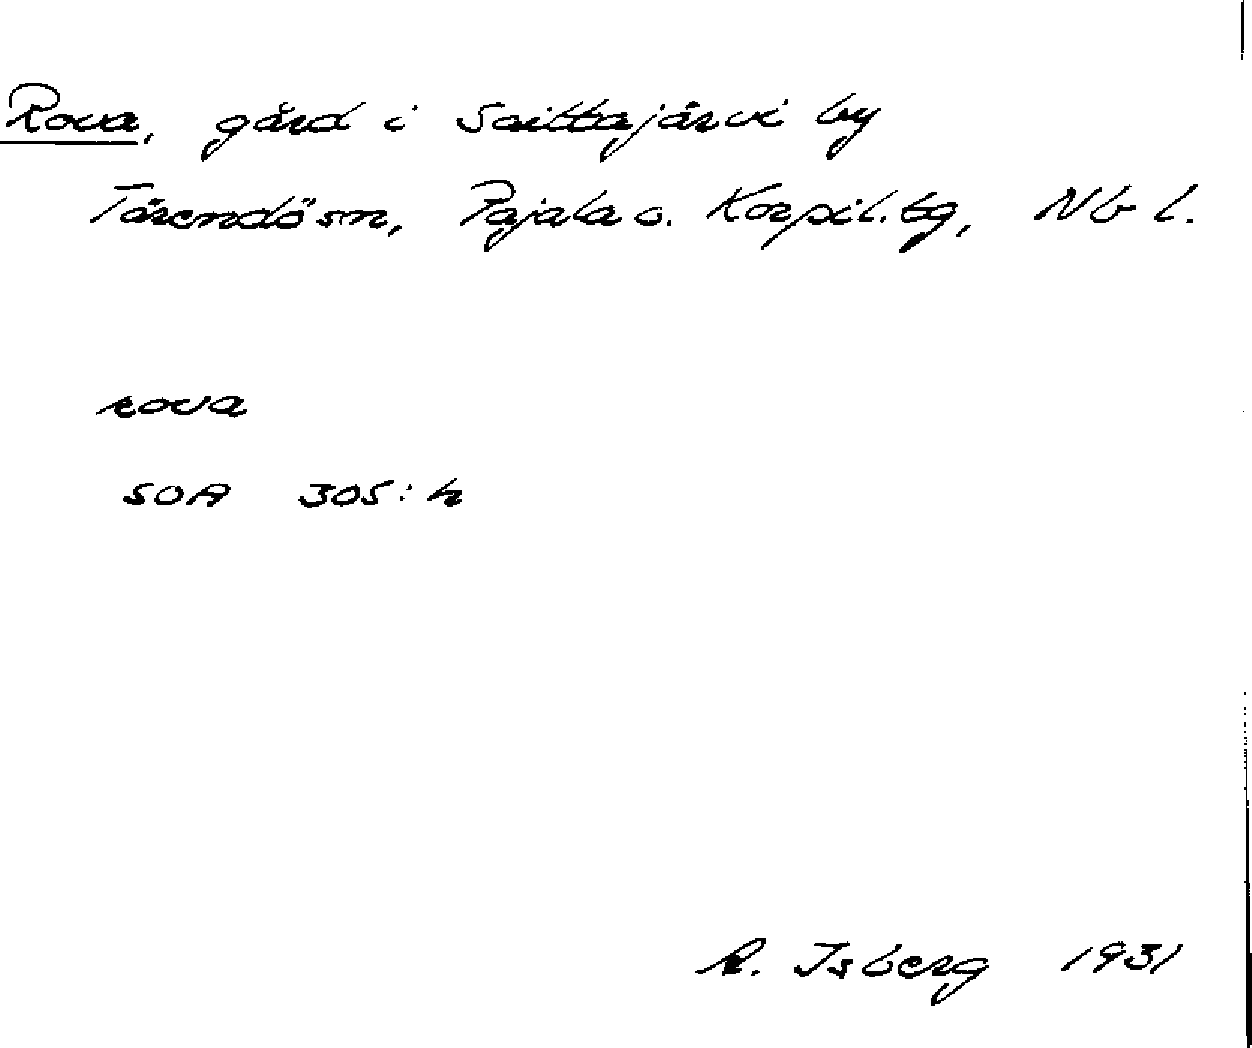 Rova, gård i Saittajärvi by
Tärendö sn, Pajala o. Korpil. tg, Nb l.
rova
SOA 305: h
R. Isberg 1931